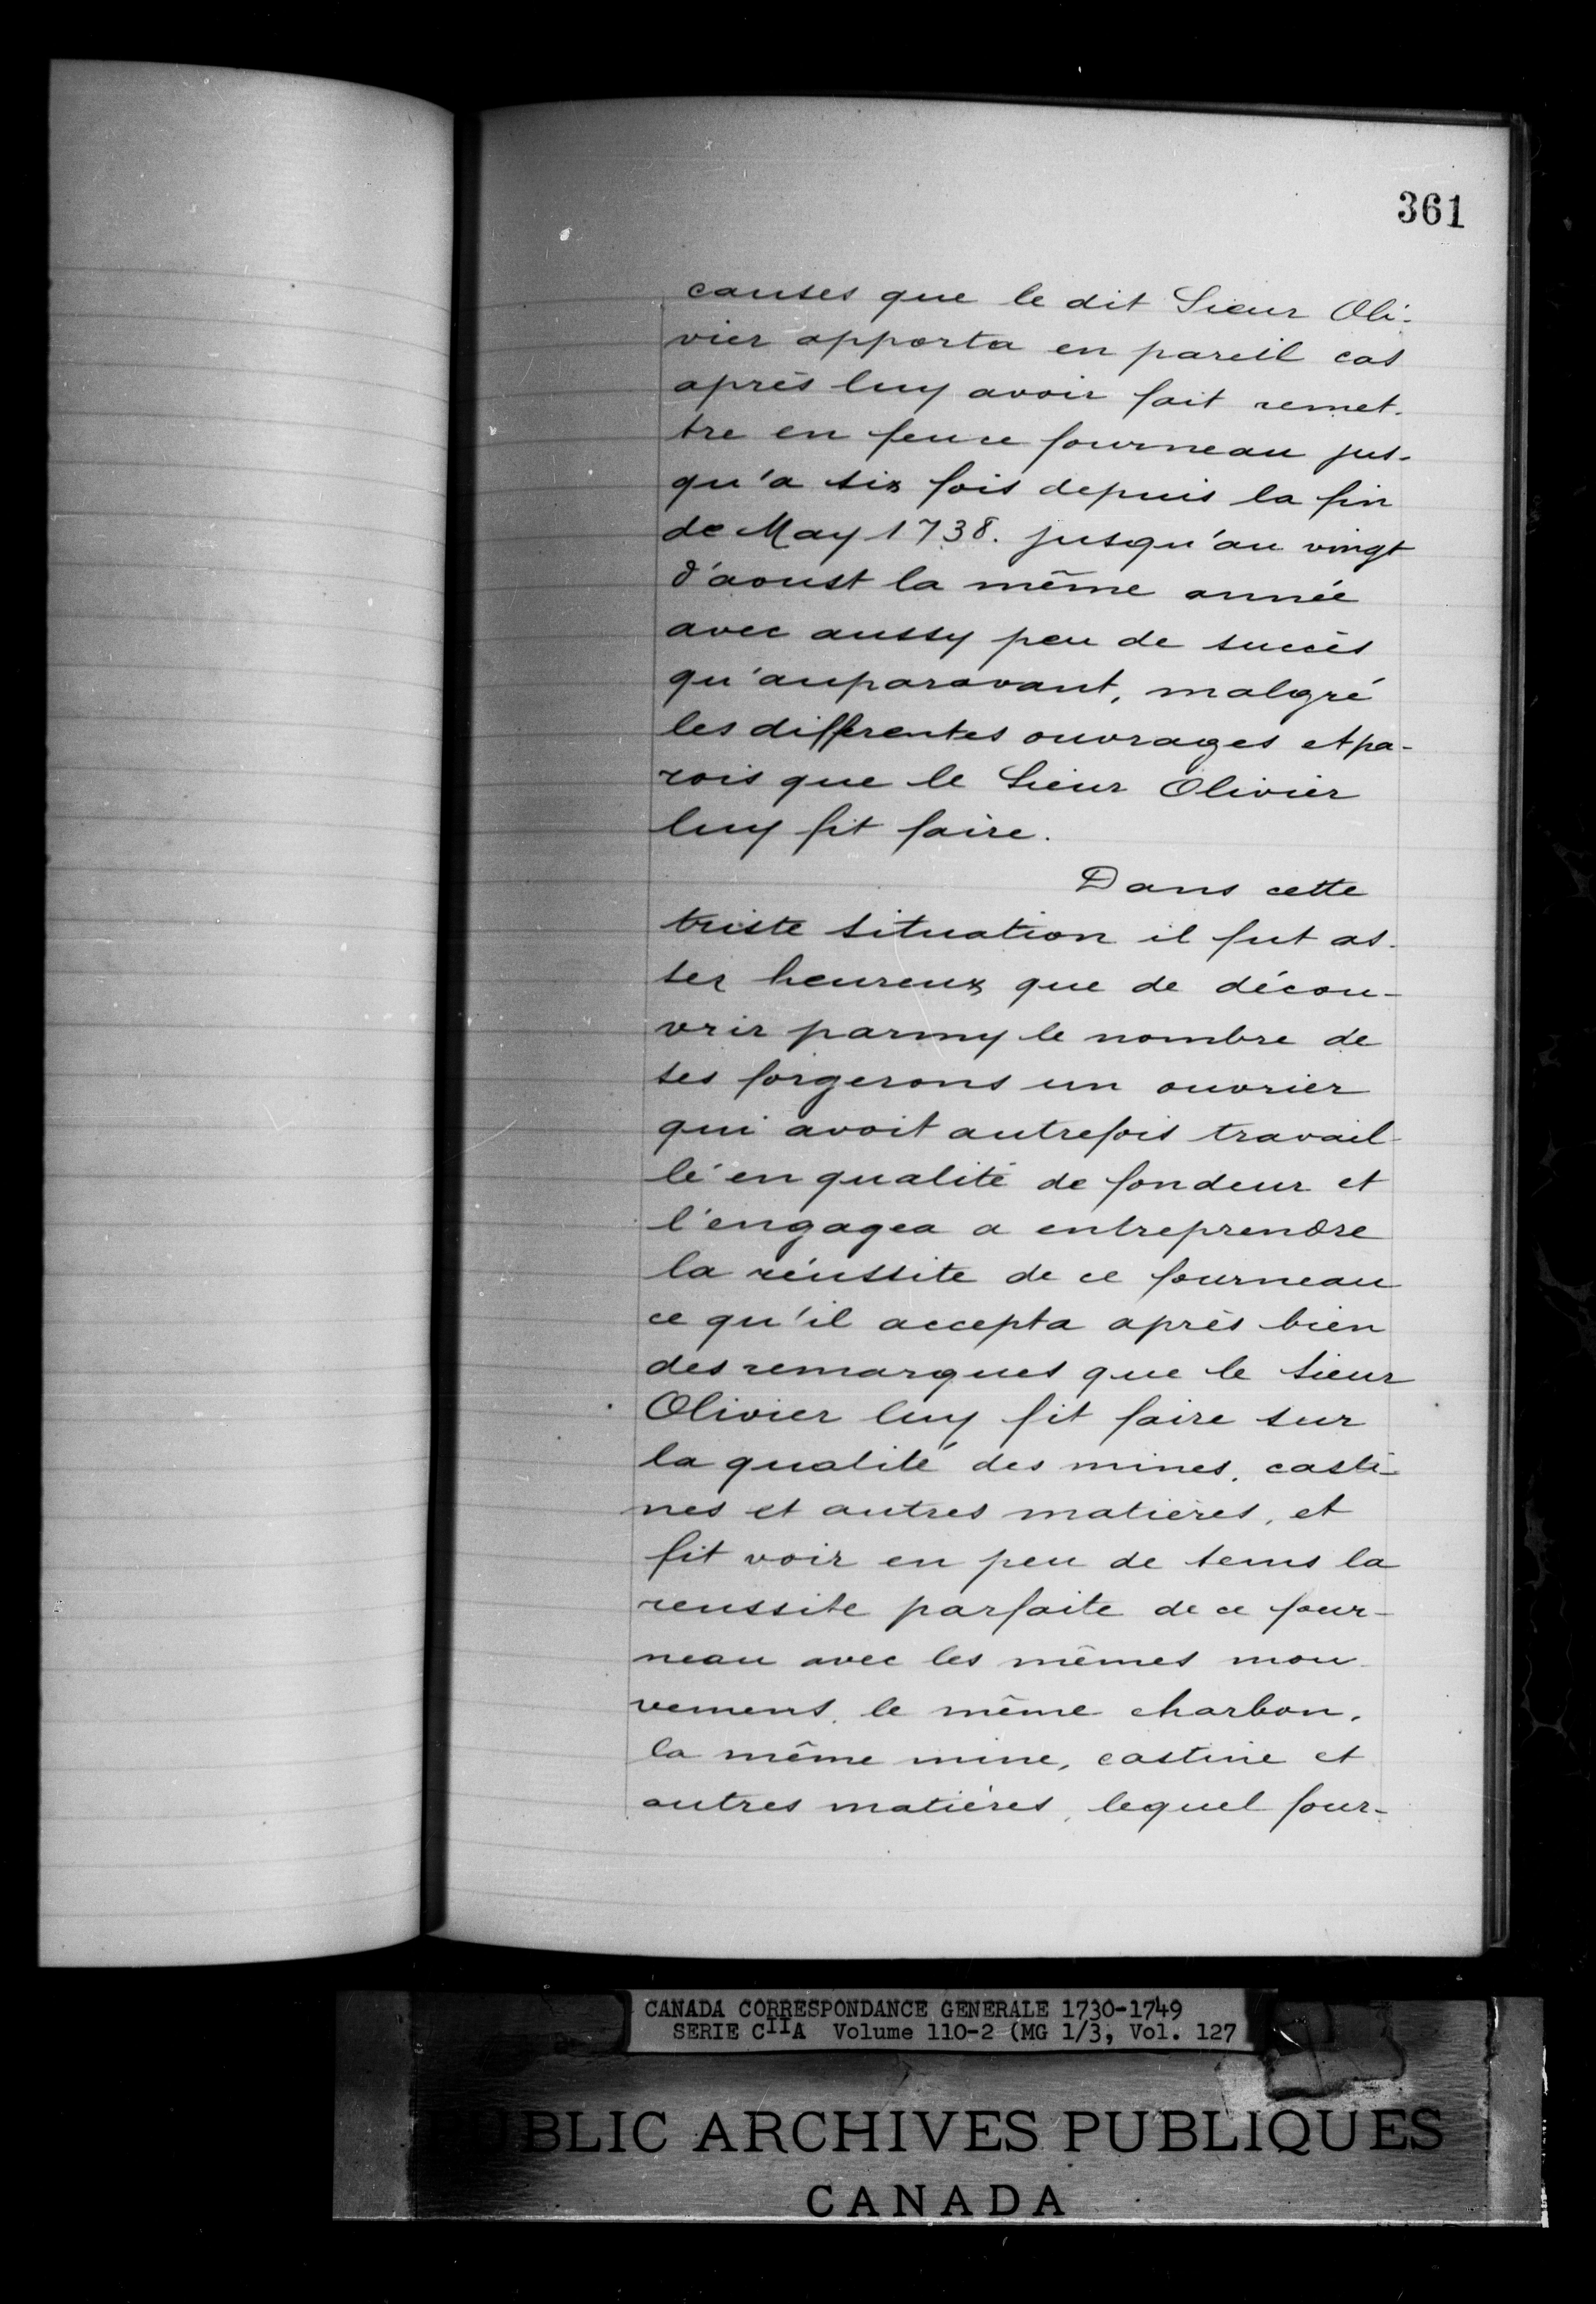 361
causes que le dit Sieur Oli-
vier apporta en pareil cas
après luy avoir fait remet-
tre en feu ce fourneau jus-
qu'a six fois depuis la fin
de May 1738. jusqu'au vingt
d'aoust la même année
avec aussy peu de succès
qu'auparavant, malgré
les differentes ouvrages et pa-
rois que le Sieur Olivier
luy fit faire.
Dans cette
triste situation il fut as-
sez heureux que de décou-
vrir parmy le nombre de
ses forgerons un ouvrier
qui avoit autrefois travail-
lé en qualité de fondeur et
l'engagea a entreprendre
la réussite de ce fourneau
ce qu'il accepta après bien
des remarques que le Sieur
Olivier luy fit faire sur
la qualité des mines, casti-
nes et autres matières, et
fit voir en peu de tems la
reussite parfaite de ce four-
neau avec les mêmes mou-
vemens, le même charbon,
la même mine, castine et
autres matières, lequel four-
CANADA CORRESPONDANCE GENERALE 1730-1749
SERIE CIIA Volume 110-2 (MG 1/3, Vol. 127
BLIC ARCHIVES PUBLIQUES
CANADA